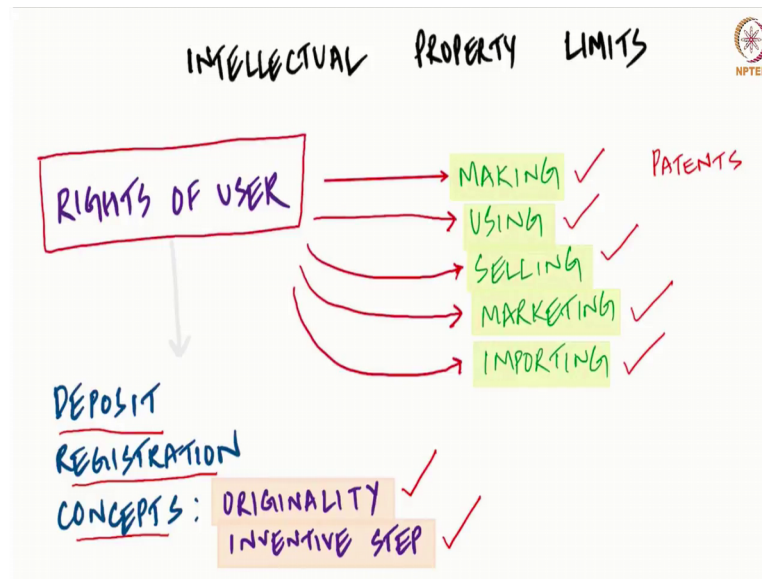 INTELLECTUAL PROPERTY LIMITS
NPTEL
RIGHTS OF USER
MAKING
PATENTS
USING
SELLING
MARKETING
IMPORTING
DEPOSIT
REGISTRATION
CONCEPTS : ORIGINALITY
INVENTIVE STEP